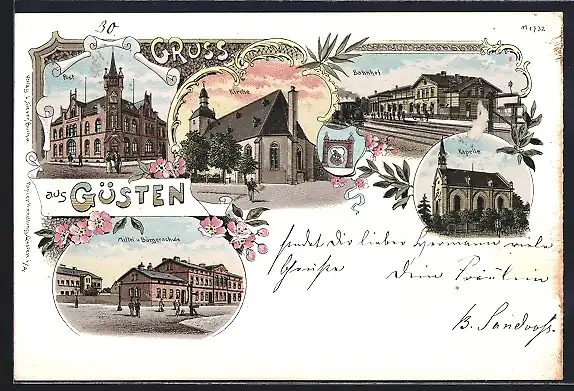 30
M 1732
GRUSS
Post
Kirche
Bahnhof
Kapelle
aus GÜSTEN
Mittel u. Bürgerschule
sendet Dir lieber Hermann viele
Grüsse Dein Fräulein
B. Sandvoss.